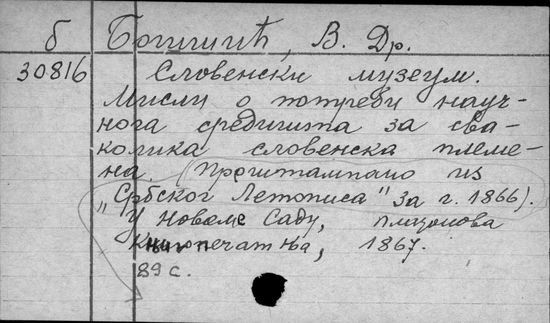 б Богишић, В. Др.
30816 Словенски музеум.
Мисли о потреби науч-
нога средишта за сва-
колика словенска племе-
на. (Прештампано из
„Србског Летописа" за г. 1866).
У Новоме Саду,
Књигопечатња, 1867.
89 с.